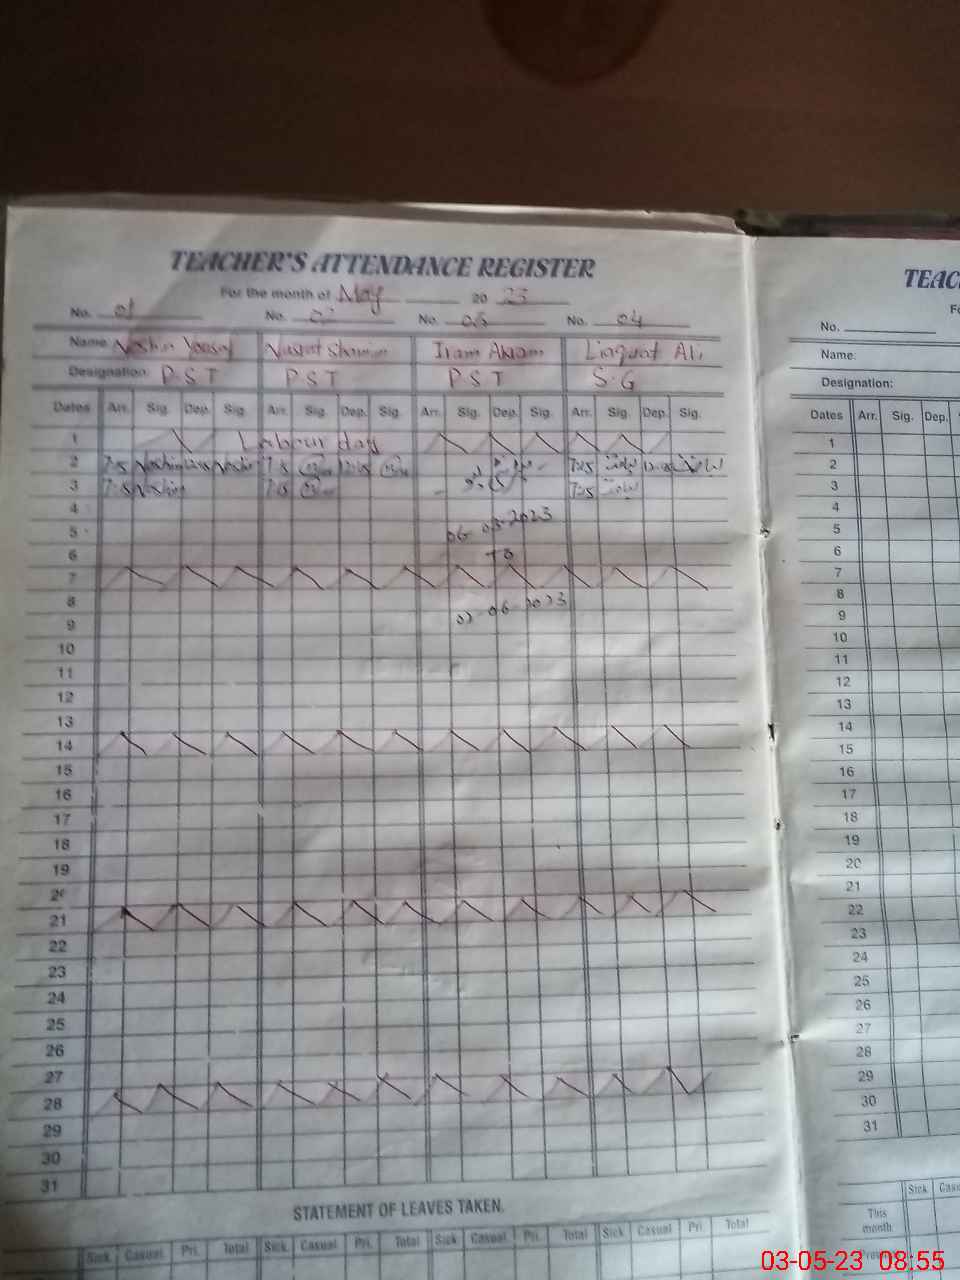 TEACHER'S ATTENDANCE REGISTER
For the month of May 20 23
No. 01 No. 02 No. 03 No. 04
Name Noshin Yousaf Nusrat Shamim Iram Akram Liaquat Ali
Designation: P.S.T P.S.T P.S.T S.G
Dates Arr. Sig. Dep. Sig. Arr. Sig. Dep. Sig. Arr. Sig. Dep. Sig. Arr. Sig. Dep. Sig.
1 Labour day
2 7:15 Noshin 12:15 Noshin 7:15 12:15 7:15 لیاقت 12:15 لیاقت
3 7:15 Noshin 7:15 7:15 لیاقت
4
5 06-03-2023
6 To
7
8 02-06-2023
9
10
11
12
13
14
15
16
17
18
19
20
21
22
23
24
25
26
27
28
29
30
31
STATEMENT OF LEAVES TAKEN.
Sick Casual Pri. Total Sick Casual Pri. Total Sick Casual Pri. Total Sick Casual Pri Total
TEAC
No.
Name:
Designation:
Dates Arr. Sig. Dep.
1
2
3
4
5
6
7
8
9
10
11
12
13
14
15
16
17
18
19
20
21
22
23
24
25
26
27
28
29
30
31
Sick
This
month
03-05-23 08:55